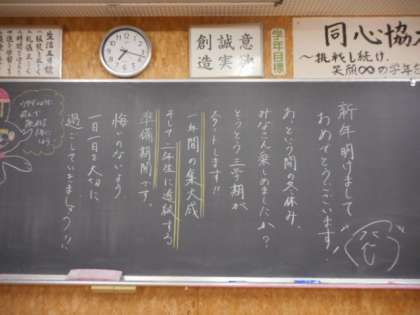 同心協
～挑戦し続け、
笑顔∞の学年
学年目標
意欲
誠実
創造
生活五目標
新年明けまして
おめでとうございます!
あっという間の冬休み、
みなさん楽しめましたか?
とうとう三学期が
スタートします!!
一年間の集大成
そして二年生に進級する
準備期間です。
悔いのないよう
一日一日を大切に
過ごしていきましょう!!